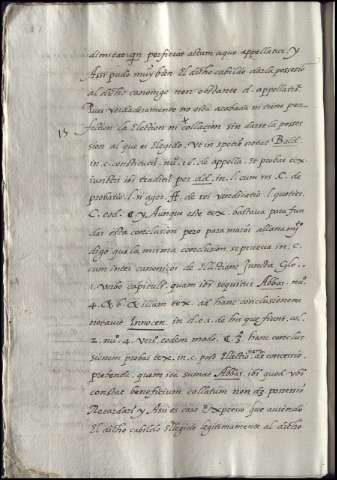 dimitat qn perficiat actum a quo appellatur. y
Assi pudo muy bien El dicho cabildo dar la possessio
al dicho canonigo non obstante el appellatio
Pues verdaderamente no esta acabada ni tiene per
fection la Election ni collacion sin darse la posses
15 sion al que es Elegido, ut in specie notat Bald.
in. c. constitutis. nu.
de appella. et probat tex.
iunctis ibi traditis per
in. l. cum res. C. de
probatio. l. si ager. ff. de rei vendicatio. l. quoties.
C. eod. Y Aunque este tex. bastava para fun
dar esta conclusion pero para maior
digo que la misma conclusion se prueva in. c.
cum inter canonicos de Electione Iuncta Glo.
verbo capituli. quam ibi sequitur Abbas. nu.
4. & 6. & illum tex. ad hanc conclusionem
notavit Innocen. in. de his que fiunt. col.
2. nu. 4. vers. eodem modo. hanc conclu
sionem probat tex. in. c. post Electionem de concessio.
prebende. quam ita sumat Abbas. ibi quod ubi
constat beneficium collatum non possessio
Retardari y Assi es caso expresso que aviendo
El dicho cabildo Elegido legitimamente al dicho